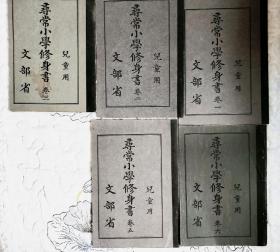 兒童用
尋常小學修身書 卷一
文部省
兒童用
尋常小學修身書 卷二
文部省
兒童用
尋常小學修身書 卷三
文部省
兒童用
尋常小學修身書 卷六
文部省
兒童用
尋常小學修身書 卷五
文部省